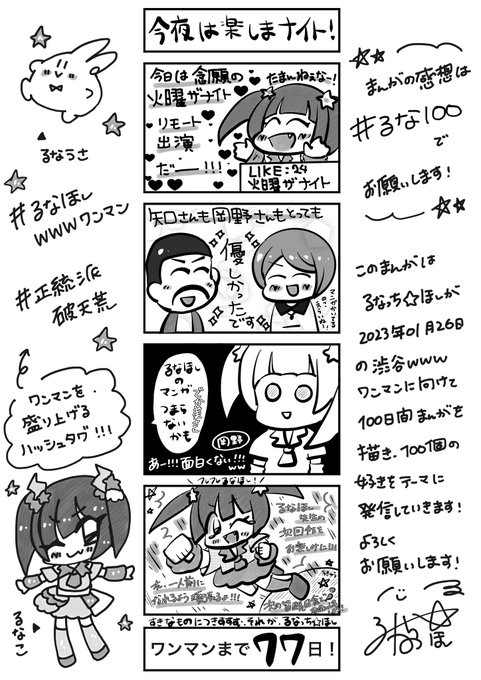 今夜は楽しまナイト!
今日は念願の
火曜がナイト
リモート
出演
だー!!!
たまんねぇなー!
LIKE:24
火曜がナイト
矢口さんも岡野さんもとっても
優しかったです
るなほし
のマンガ
つまらないかも
岡野
あー!!!面白くない!!!
ww
フレフレるなほし!
るなほし
先生の
次回作を
お楽しみに!!!
すきなものにつきすすむ、それが、るなっち☆ほし
ワンマンまで77日!
るなうさ
#るなほし
wwwワンマン
#正統派
破天荒
ワンマンを
盛り上げる
ハッシュタグ!!!
るなこ
まんがの感想は
#るな100
で
お願いします!
このまんがは
るなっち☆ほしが
2023年01月26日
の渋谷www
ワンマンに向けて
100日間まんがを
描き、100個の
好きをテーマに
発信していきます!
よろしく
お願いします!